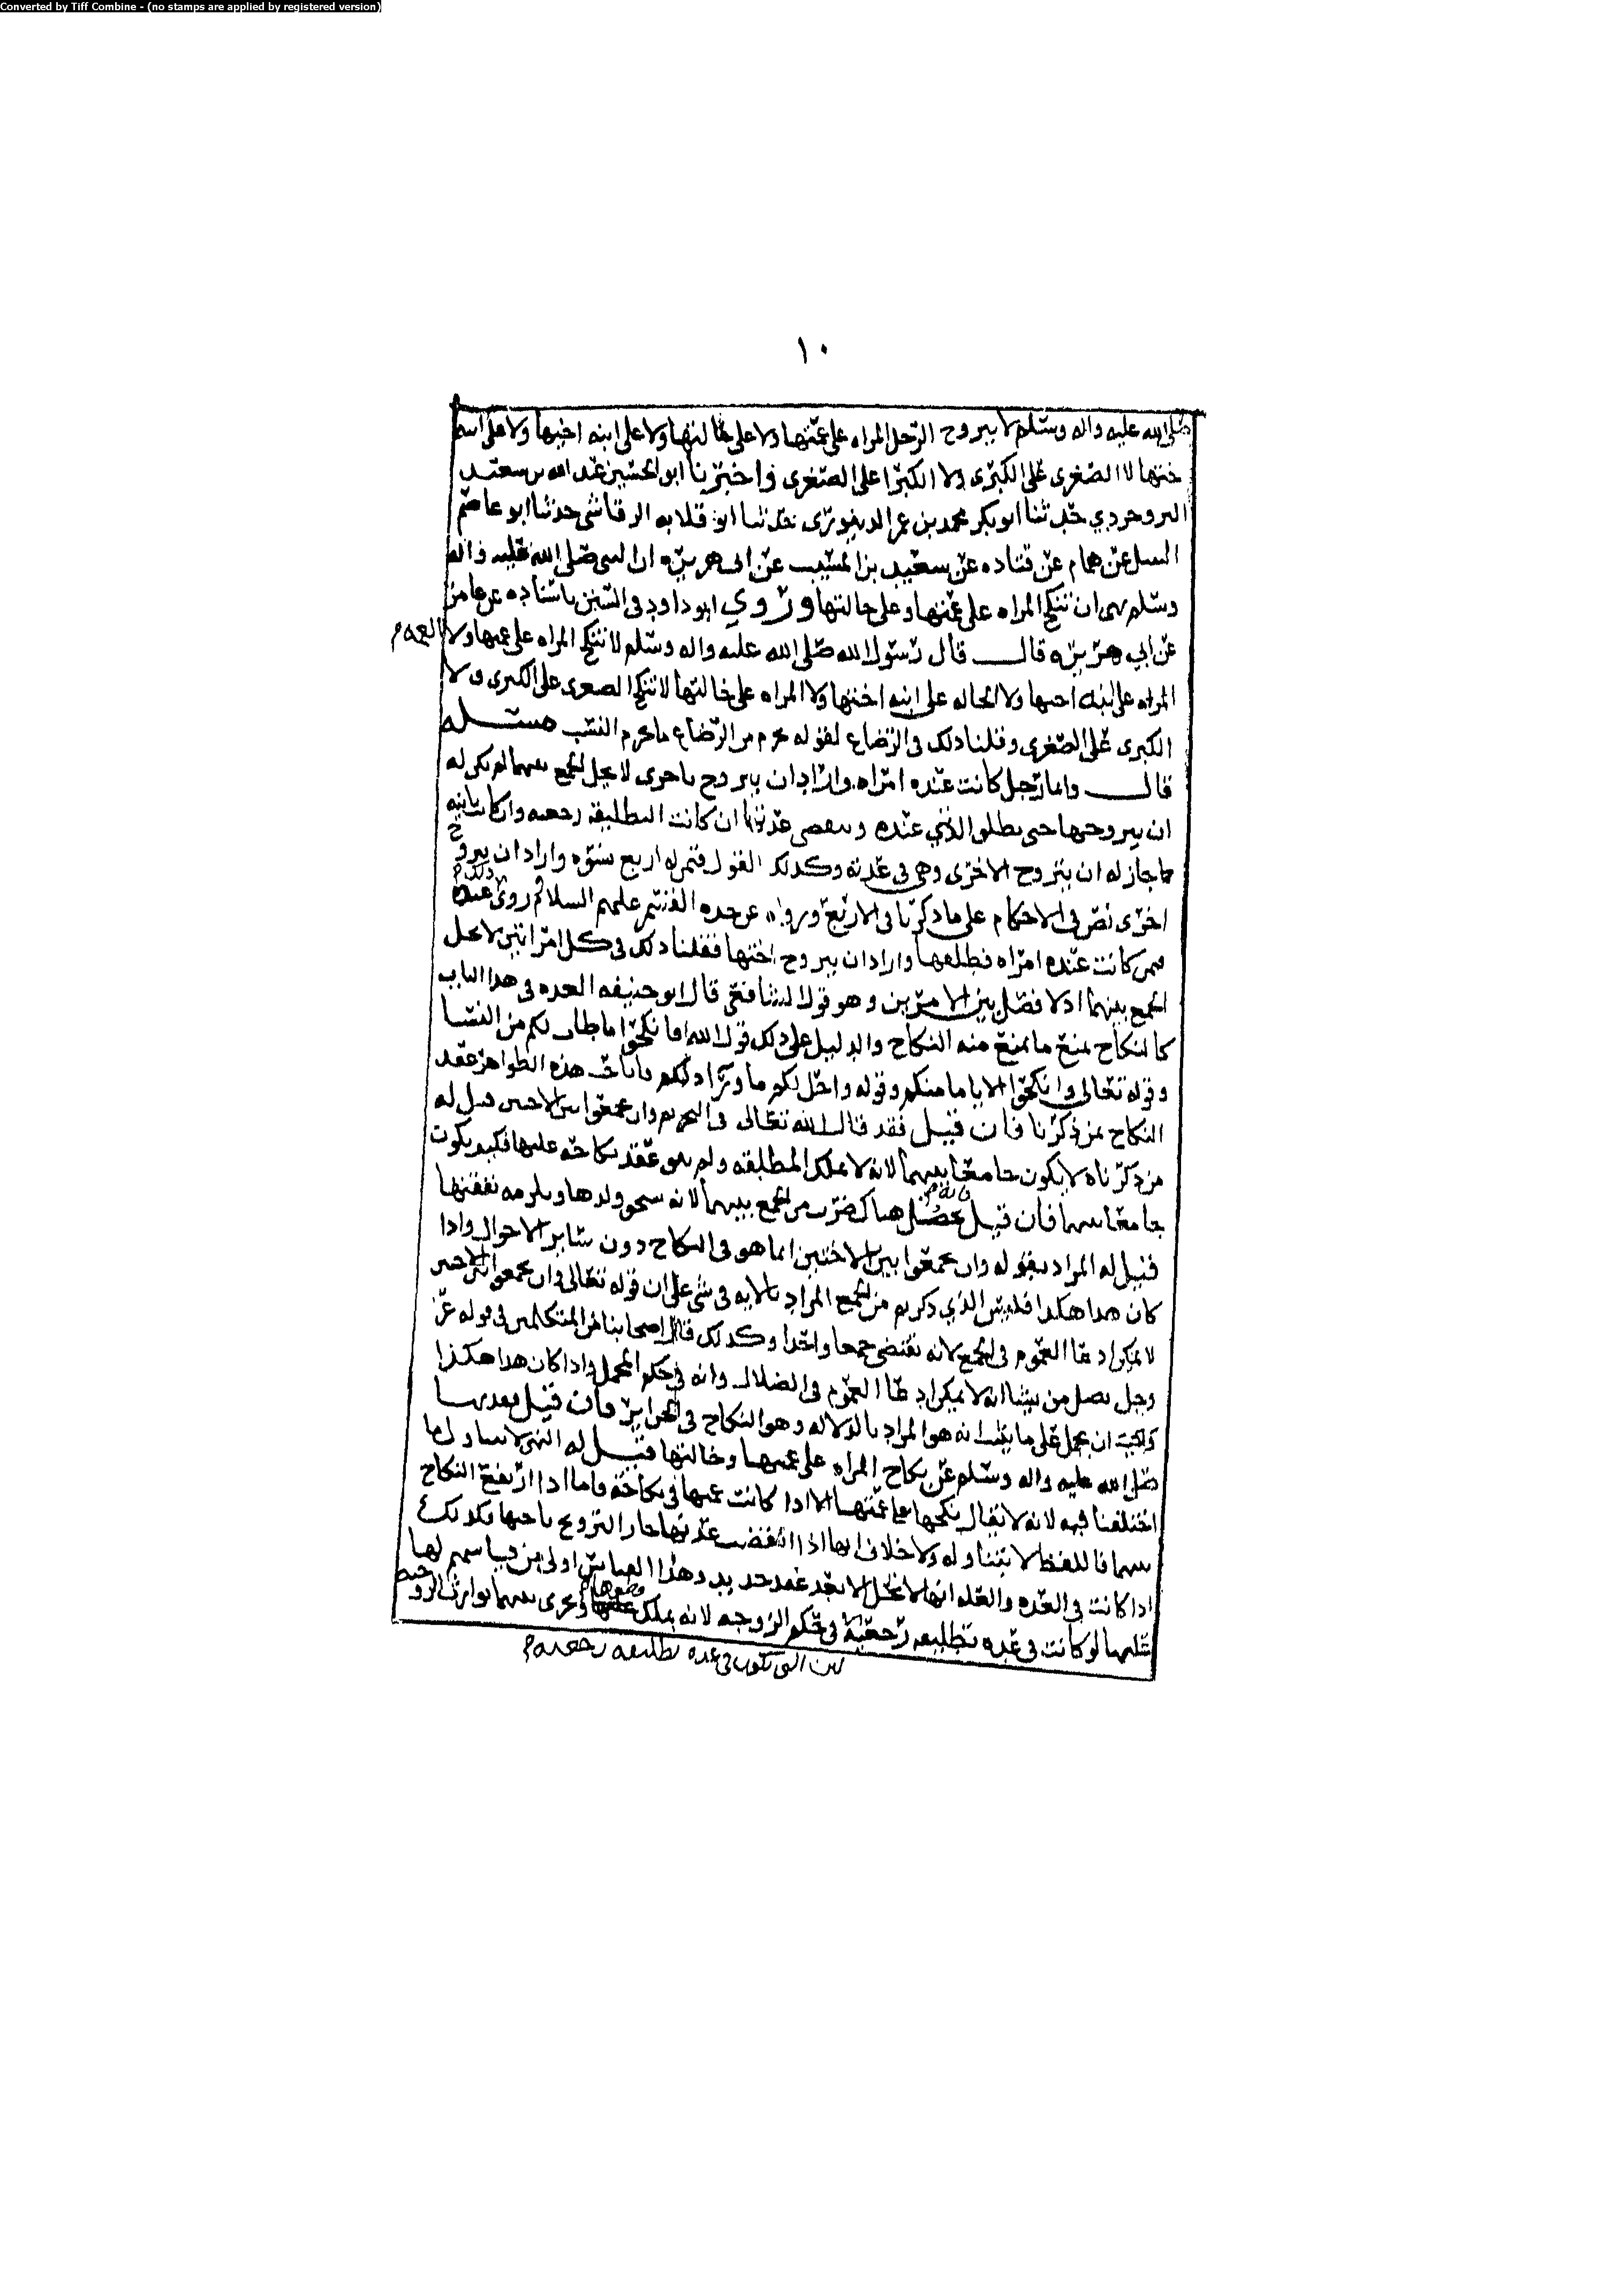 Converted by Tiff Combine - (no stamps are applied by registered version)
١٠
صلى الله عليه واله وسلم لا يتزوج الرجل المراه على عمتها ولا على خالتها ولا على ابنه اخيها ولا على ابنه
اختها لا الصغرى على الكبرى ولا الكبرا على الصغرى واخبرنا ابو الحسين عبد الله بن سعيد
البروجردي حدثنا ابو بكر محمد بن عمر الدينوري حدثنا ابو قلابه الرقاشي حدثنا ابو عاصم
النبيل عن همام عن قتاده عن سعيد بن المسيب عن ابي هريره ان النبي صلى الله عليه واله
وسلم نهى ان تنكح المراه على عمتها وعلى خالتها وروي ابو داود في السنن باسناده عن عامر
عن ابي هريره قال قال رسول الله صلى الله عليه واله وسلم لا تنكح المراه على عمتها ولا العمه
المراه على ابنه اخيها ولا الخاله على ابنه اختها ولا المراه على خالتها لا تنكح الصغرى على الكبرى ولا
الكبرى على الصغرى وقلنا ذلك في الرضاع لقوله يحرم من الرضاع ما يحرم من النسب مسئله
قال وايما رجل كانت عنده امراه واراد ان يتزوج باخرى لا يحل الجمع بينهما لم يكن له
ان يتزوجها حتى يطلق الذي عنده وتنقضي عدتها ان كانت التطليقه رجعيه وان كان باينه
جاز له ان يتزوج الاخرى وهي في عدته وكذلك القول فيمن له اربع نسوه واراد ان يتزوج
اخرى نص في الاحكام على ما ذكرنا في الاربع ورواه عن جده القسم عليهم السلام روى عنه ذلك
فيمن كانت عنده امراه فطلقها واراد ان يتزوج اختها فقلنا ذلك في كل امراتين لا يحل
الجمع بينهما اذ لا فصل بين الامرين وهو قول الشافعي قال ابو حنيفه العده في هذا الباب
كالنكاح يمنع ما يمنع منه النكاح والدليل على ذلك قول الله فانكحوا ما طاب لكم من النسا
وقوله تعالى وانكحوا الايامى منكم وقوله واحل لكم ما ورآ ذلكم فاباحت هذه الظواهر عقد
النكاح بمن ذكرنا فان قيل فقد قال الله تعالى في التحريم وان تجمعوا بين الاختين قيل له
من ذكرناه لا يكون جامعا بينهما لانه لا يملك المطلقه ولم يبق عقد نكاحه عليها فكيف يكون
جامعا بينهما فان قيل فانه يحصل هناك ضرب من الجمع بينهما لانه يستحق ولدها ويلزمه نفقتها
قيل له المراد بقوله وان تجمعوا بين الاختين انما هو في النكاح دون ساير الاحوال واذا
كان هذا هكذا فليس الذي ذكرتم من الجمع المراد بالايه في شي على ان قوله تعالى وان تجمعوا بين الاختين
لا يمكن ادعا العموم في الجمع لانه يقتضي جمعا واحدا وكذلك قال اصحابنا من المتكلمين في قوله عز
وجل يضل من يشا انه لا يمكن ادعا العموم في الضلال وانه في حكم المجمل واذا كان هذا هكذا
وجب ان يحمل على ما انه هو المراد بالدلاله وهو النكاح في الحراير فان قيل فقد نهى
صلى الله عليه واله وسلم عن نكاح المراه على عمتها وخالتها قيل له النهي لا يتناول ما
اختلفنا فيه لانه لا يقال نكحها على عمتها الا اذا كانت عمتها في نكاحه فاما اذا ارتفع النكاح
بينهما فاللفظ لا يتناوله ولا خلاف انها اذا انقضت عدتها جاز التزويج باختها فكذلك
اذا كانت في العده والعله انها لا تحل الا بعد عقد جديد وهذا القياس اولى من قياسهم لها
عليها لو كانت في عده تطليقه رجعيه في حكم الزوجه لانه يملك ويجرى بينهما توارث الزوجيه
لان التي تكون في عده تطليقه رجعيه